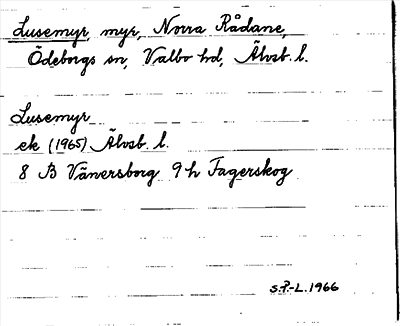 Lusemyr, myr, Norra Rådane,
Ödeborgs sn, Valbo hd, Älvsb. l.
Lusemyr
ek (1965) Älvsb. l.
8 B Vänersborg 9 h Fagerskog
S.P-L. 1966